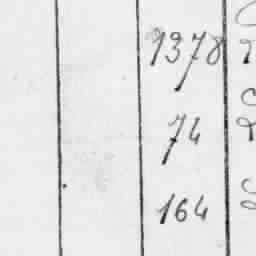 1378
74
164